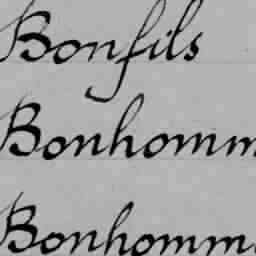 Bonfils
Bonhomm
Bonhomm